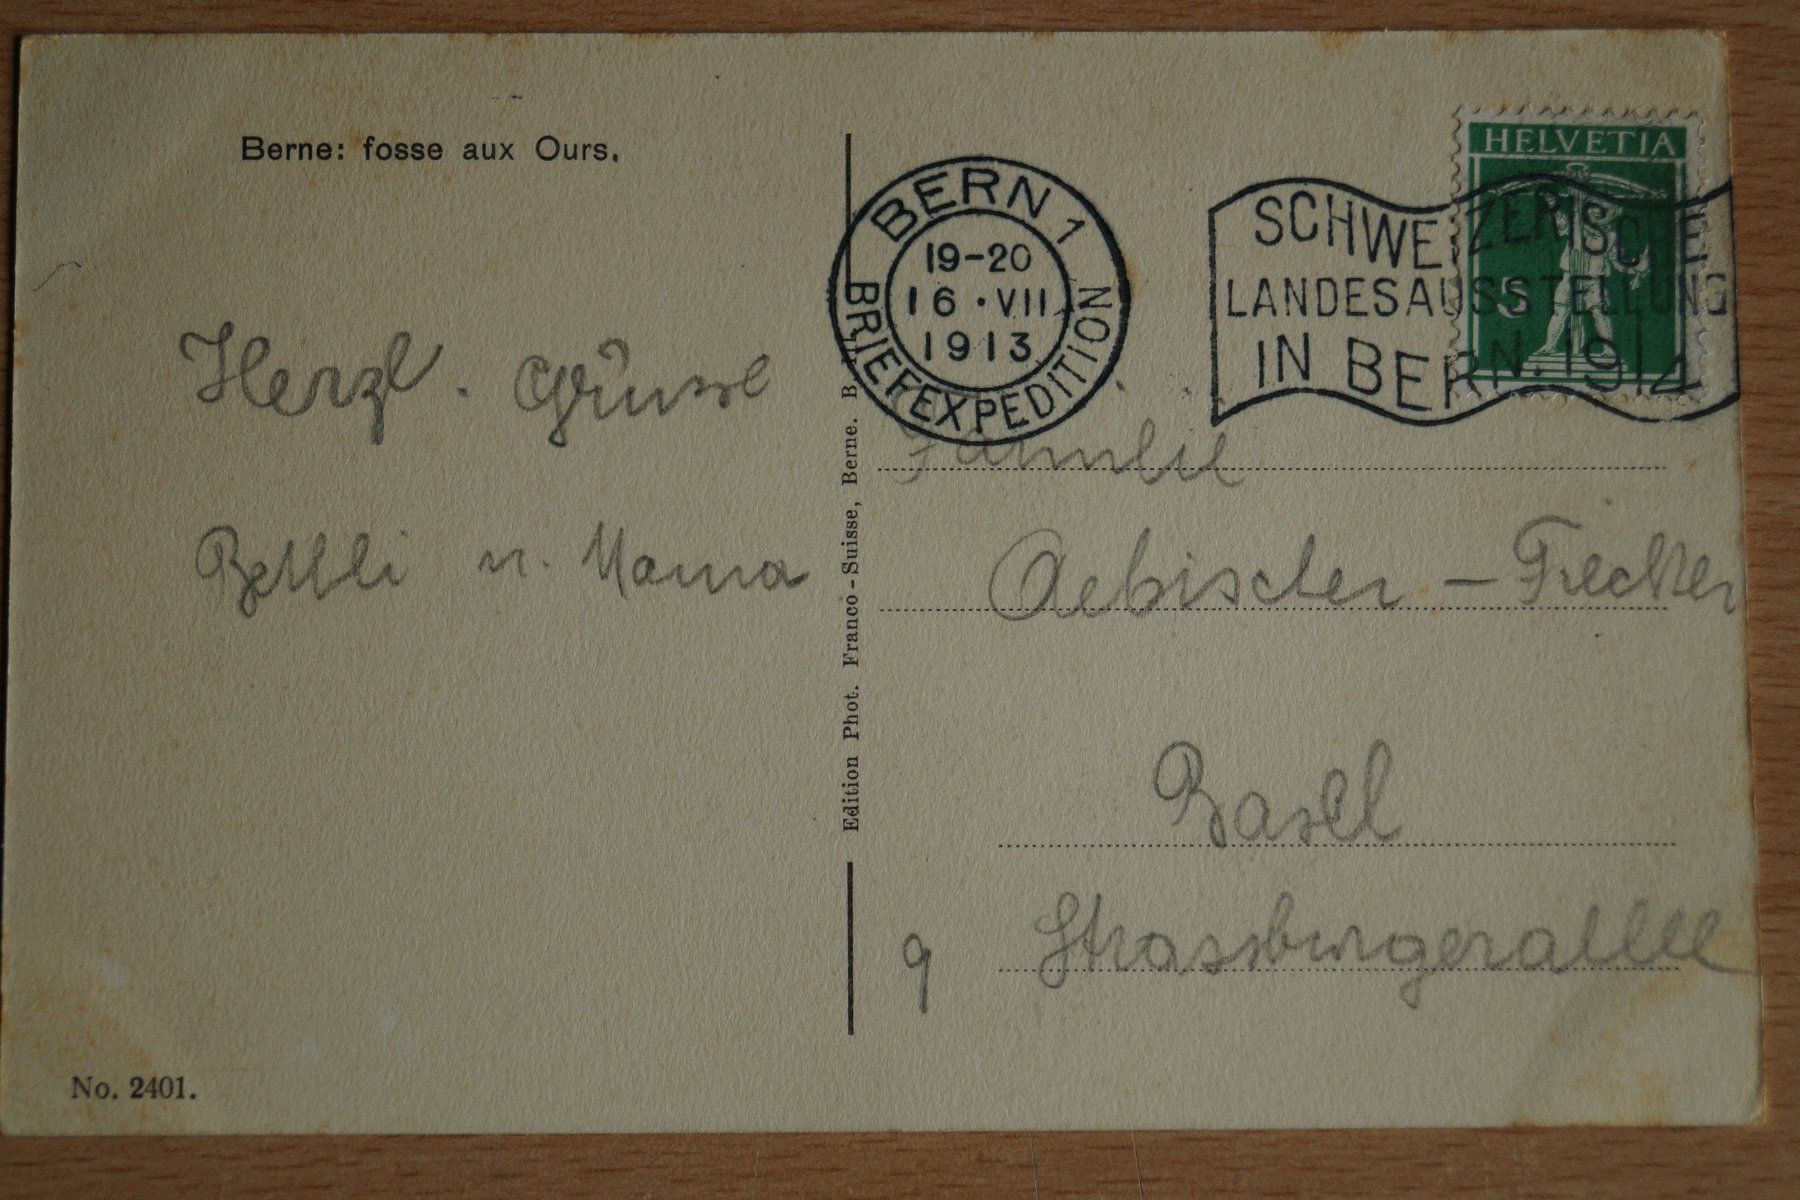 Berne: fosse aux Ours.
Herzl. Grüsse
Bethli u. Mama
No. 2401.
Edition Phot. Franco-Suisse, Berne. B
BERN 1
19-20
16·VII
1913
BRIEFEXPEDITION
SCHWEIZERISCHE
LANDESAUSSTELLUNG
IN BERN. 1914
HELVETIA
5
Familie
Aebischer - Fiechter
Basel
9 Strassburgerallee